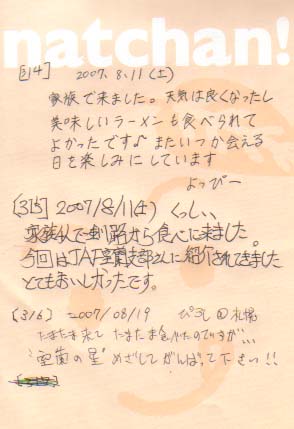 natchan!
[314] 2007.8.11(土)
家族で来ました。天気は良くなったし
美味しいラーメンも食べられて
よかったです♪またいつか会える
日を楽しみにしています
よっぴー
[315] 2007/8/11(土) くっしぃ
家族4人で釧路から食べに来ました。
今回はJAF室蘭支部さんに紹介されてきました
とてもおいしかったです。
[316] 2007/08/19 ぴろし@札幌
たまたま来て たまたま食べたのですが…
"室蘭の星"めざしてがんばって下さい!!